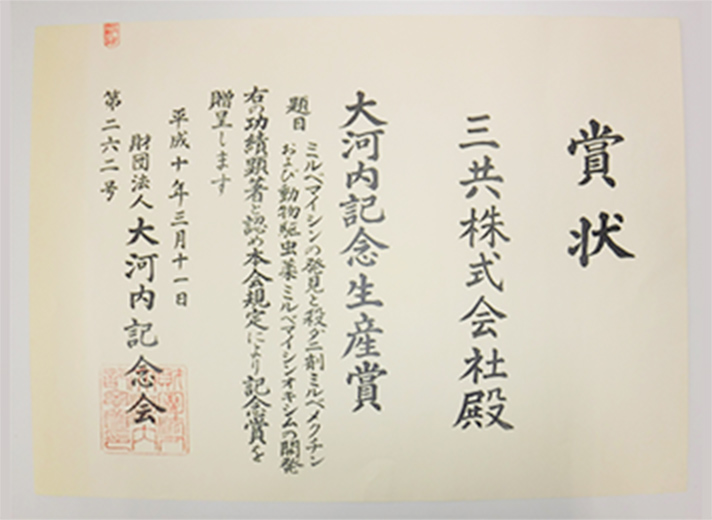 賞状
三共株式会社殿
大河内記念生産賞
題目 ミルベマイシンの発見と殺ダニ剤ミルベメクチン
および動物駆虫薬ミルベマイシンオキシムの開発
右の功績顕著と認め本会規定により記念賞を
贈呈します
平成十年三月十一日
財団法人 大河内記念会
第二六二号